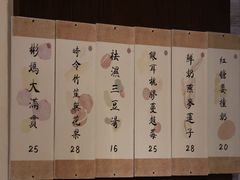 彬媽大滿貫
25
時令竹笙與花菜
28
祛濕三豆湯
16
銀耳桃膠蔓越莓
25
鮮奶燕麥蓮子
28
紅糖薑撞奶
20